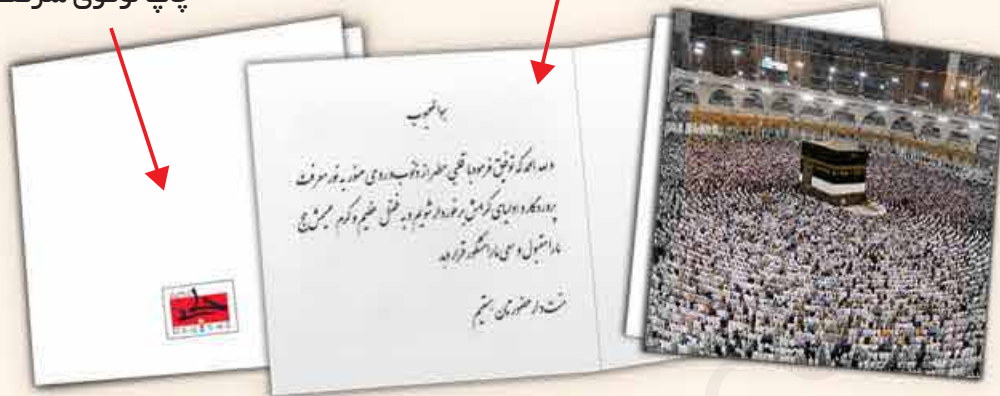 چاپ لوگوی شرکت
هوالمحبوب
ولله الحمد که توفیق فرمود با قلبی مطهر از ذنوب و روحی منور به نور معرفت
پروردگار و اولیای کرامش برخوردار شویم و به فضل عظیم و کرم عمیمش حج
ما را مقبول و سعی ما را مشکور قرار دهد
منت دار حضورتان هستیم